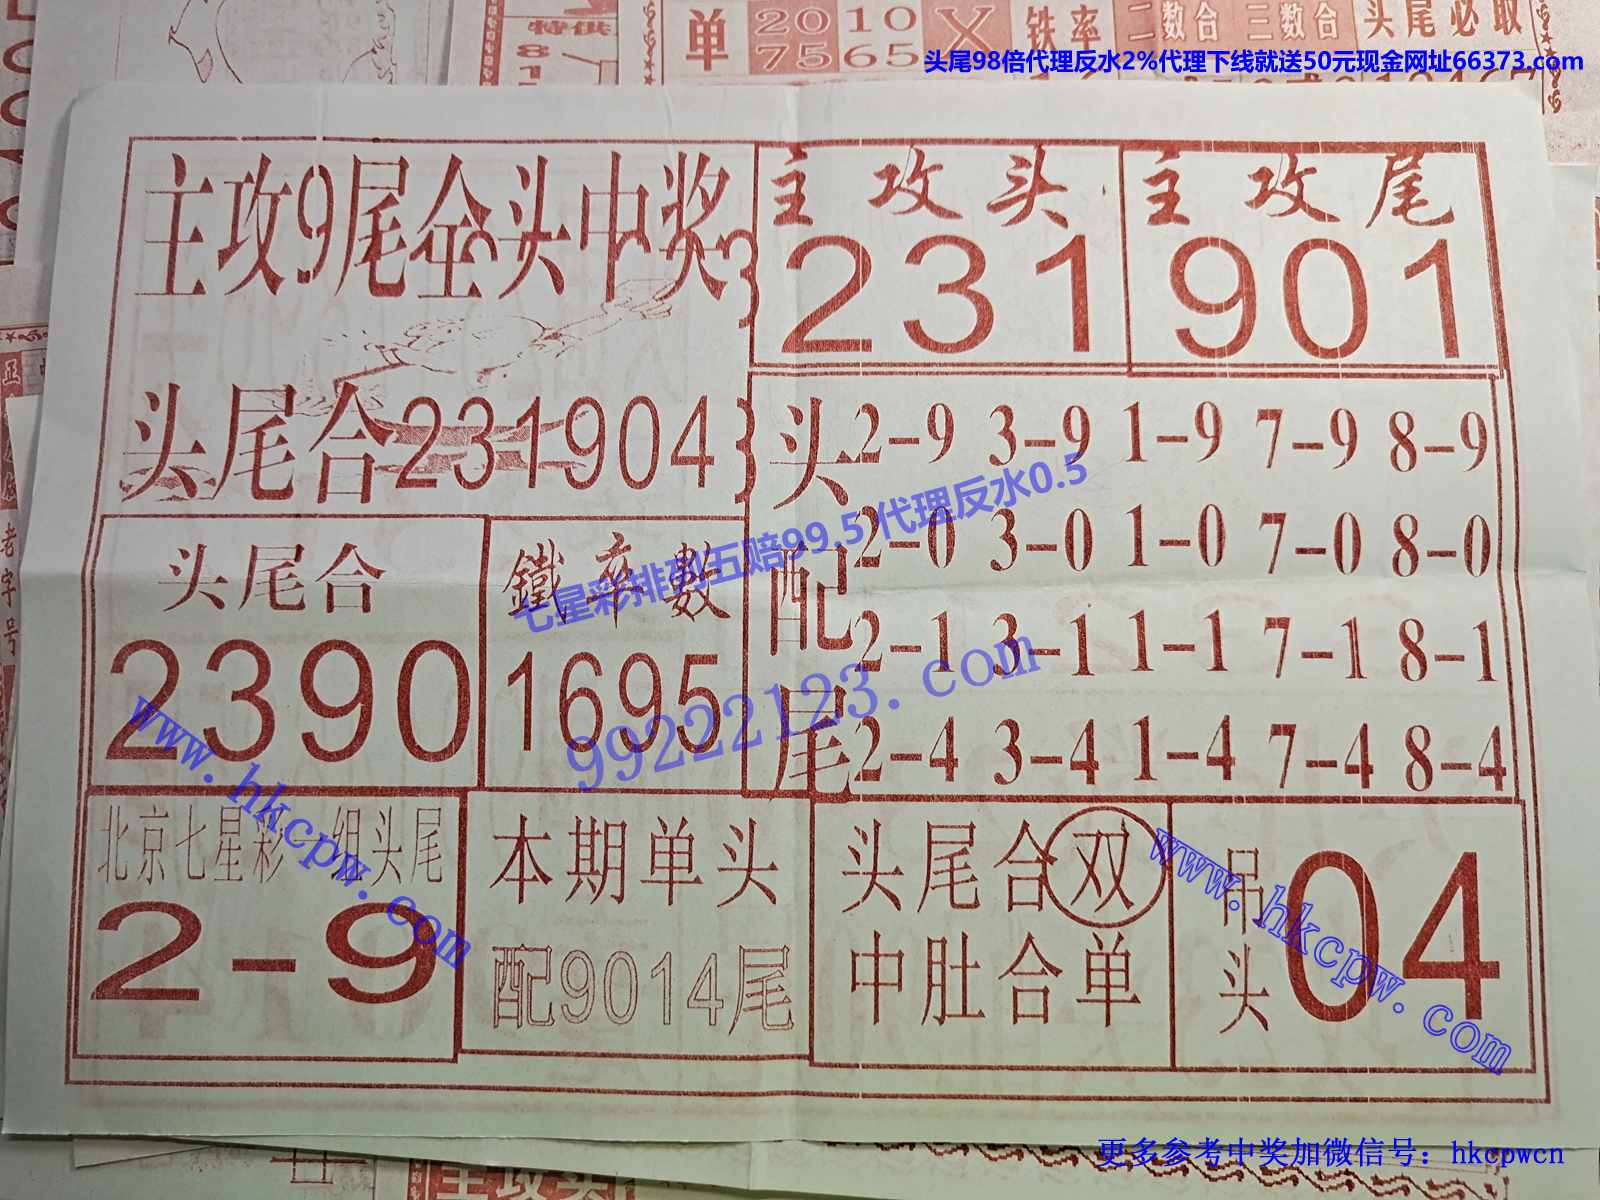 特供
单
20 10
75 65
X
铁率
二数合
三数合
头尾必取
头尾98倍代理反水2%代理下线就送50元现金网址66373.com
主攻9尾全头中奖
主攻头
231
主攻尾
901
头尾合231904
头配尾
2-9 3-9 1-9 7-9 8-9
2-0 3-0 1-0 7-0 8-0
2-1 3-1 1-1 7-1 8-1
2-4 3-4 1-4 7-4 8-4
七星彩排列五赔99.5 代理反水0.5
99222123.com
头尾合
2390
鐵率數
1695
北京七星彩一组头尾
2-9
www.hkcpw.com
本期单头
配9014尾
头尾合双
中肚合单
吊头
04
www.hkcpw.com
老字号
主攻头
更多参考中奖加微信号：hkcpwcn